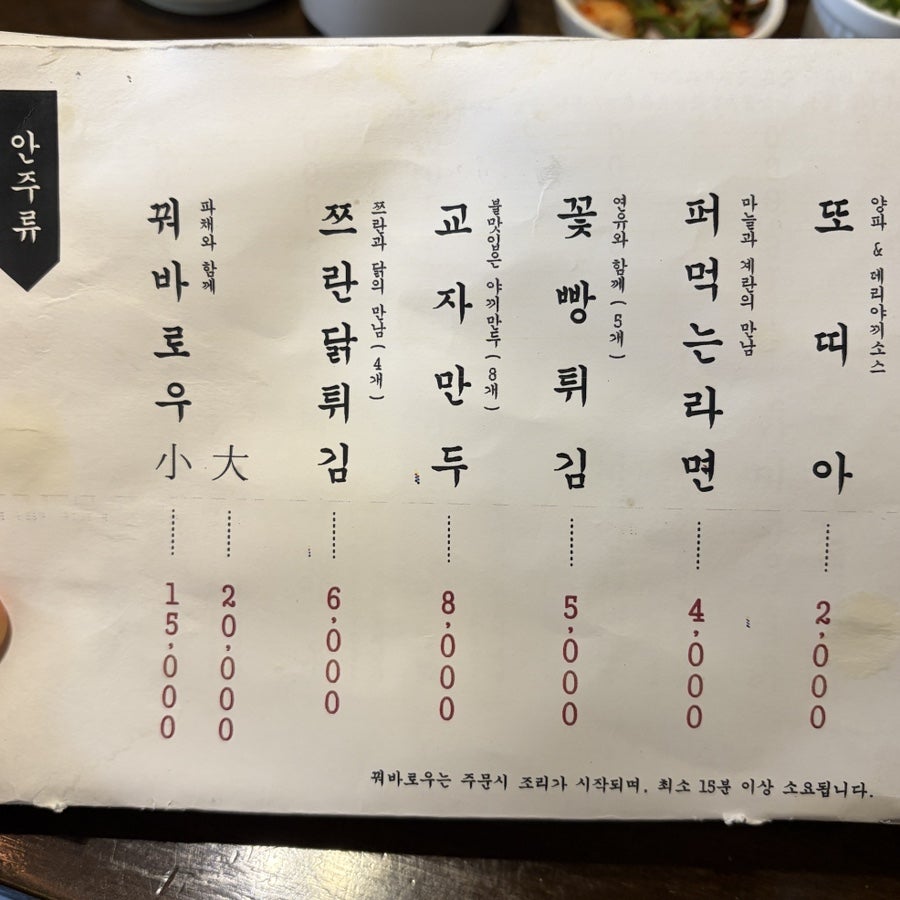 안주류
꿔바로우 小 ······· 15,000
大 ······· 20,000
파채와 함께
쯔란닭튀김 ······· 6,000
쯔란과 닭의 만남(4개)
교자만두 ······· 8,000
불맛입은 야끼만두(8개)
꽃빵튀김 ······· 5,000
연유와 함께(5개)
퍼먹는라면 ······· 4,000
마늘과 계란의 만남
또띠아 ······· 2,000
양파 & 데리야끼소스
꿔바로우는 주문시 조리가 시작되며, 최소 15분 이상 소요됩니다.